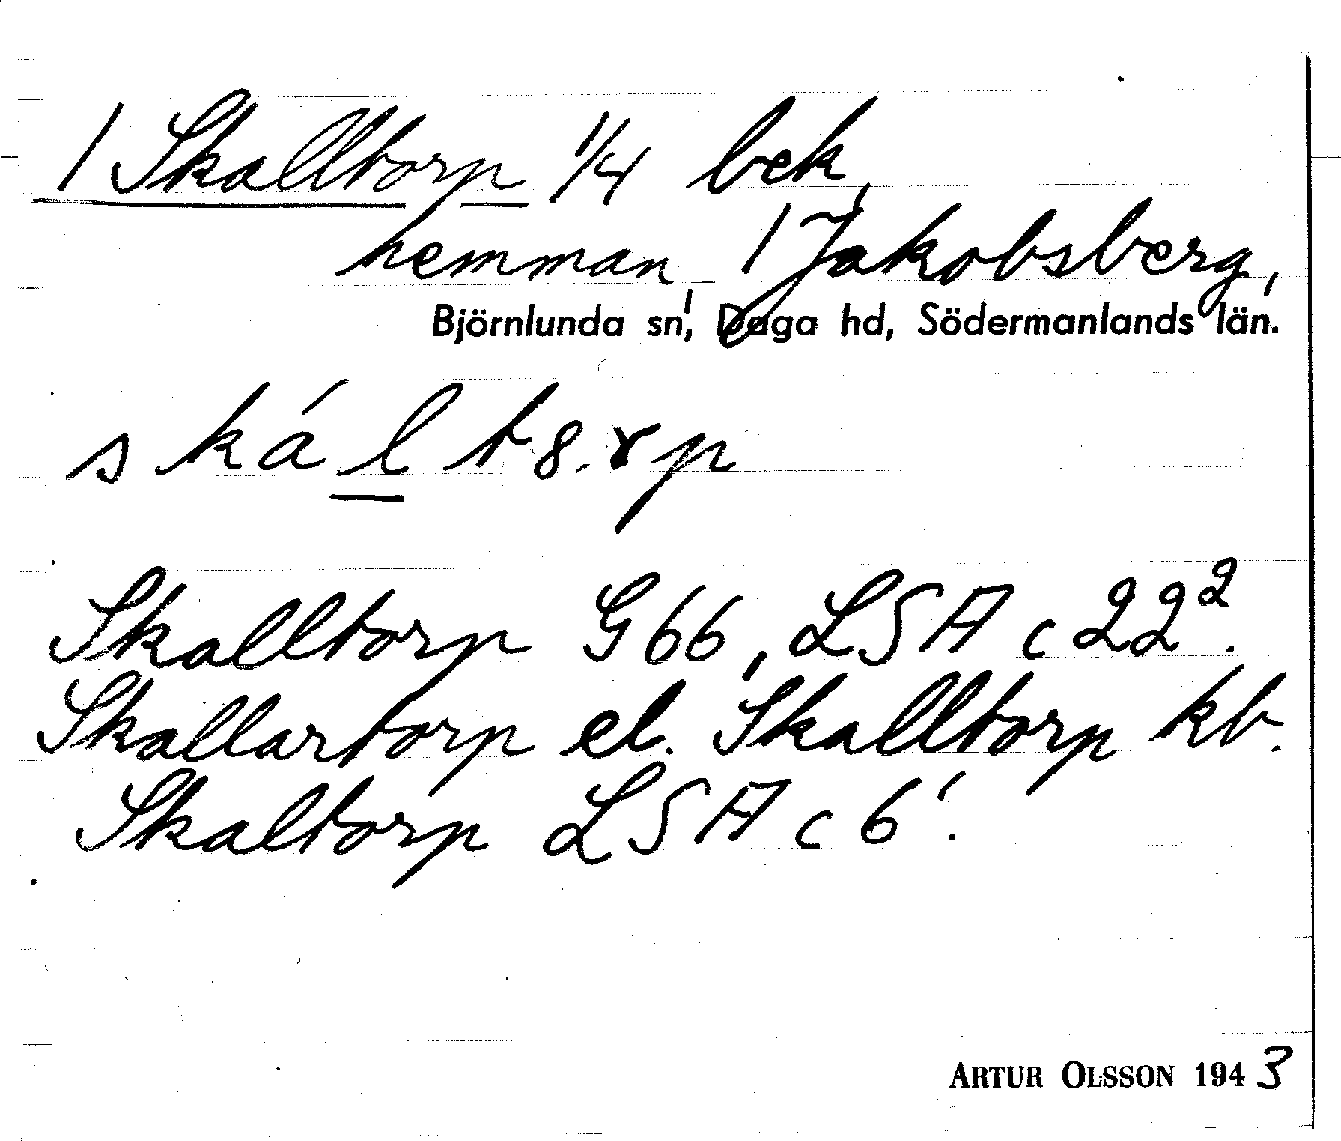 / Skalltorp 1/4 bek,
hemman, / Jakobsberg,
Björnlunda sn, Daga hd, Södermanlands län.
skáltʚ.rp
Skalltorp G 66, LSA c 22².
Skallartorp el. Skalltorp kb.
Skaltorp LSA c 6¹.
ARTUR OLSSON 1943